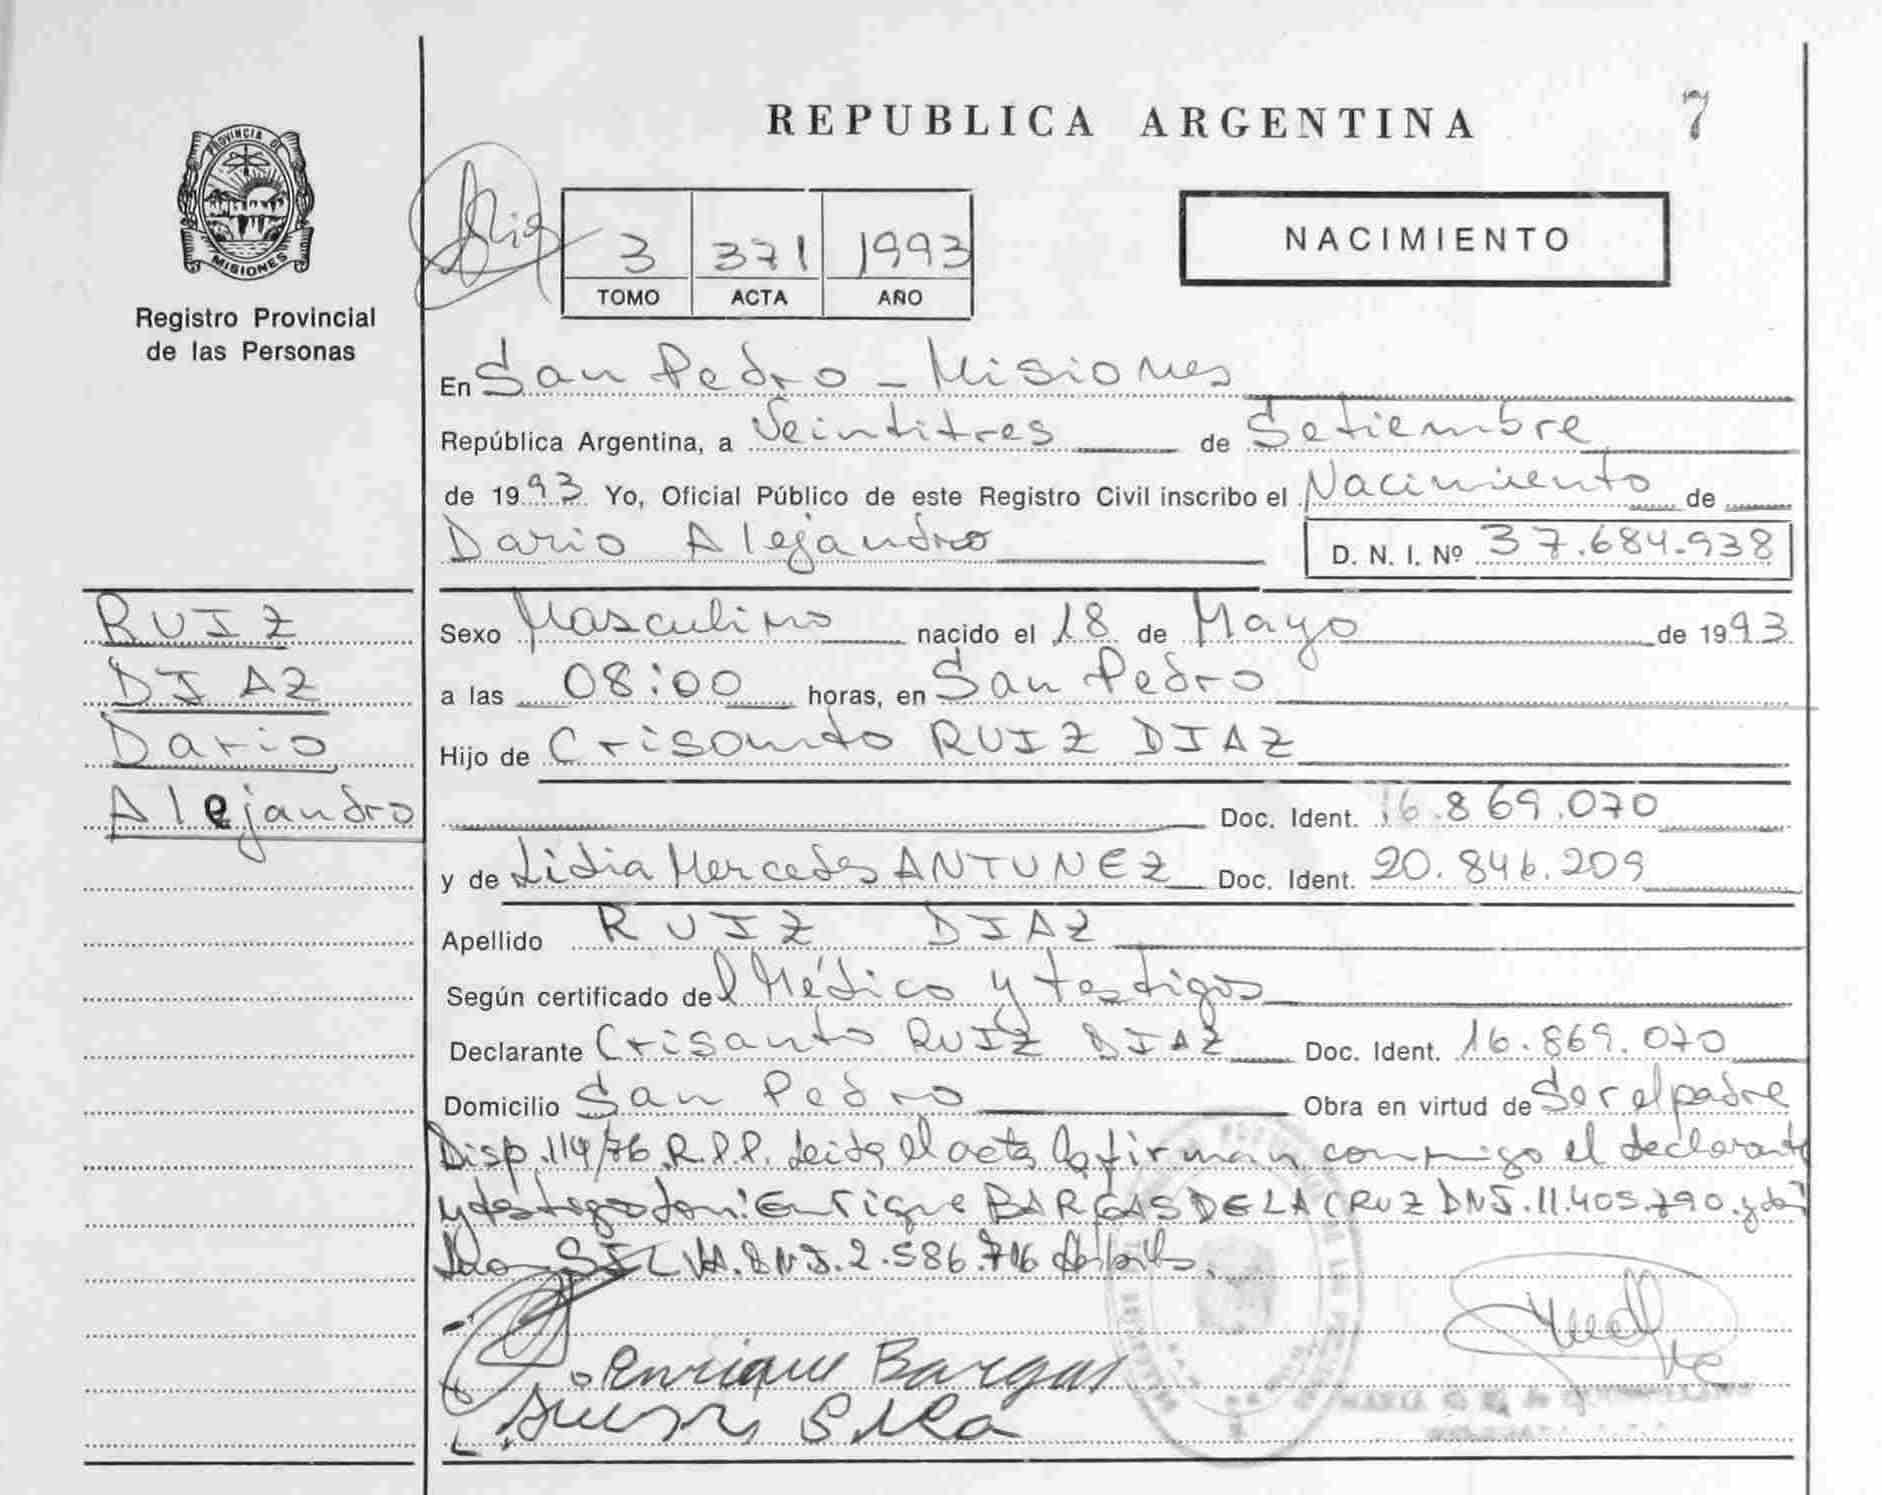 REPUBLICA ARGENTINA
7
PROVINCIA DE
MISIONES
Registro Provincial
de las Personas
3 371 1993
TOMO ACTA AÑO
NACIMIENTO
En San Pedro - Misiones
República Argentina, a Veintitres de Setiembre
de 1993 Yo, Oficial Público de este Registro Civil inscribo el Nacimiento de
Dario Alejandro D. N. I. Nº 37.684.938
RUIZ
DIAZ
Dario
Alejandro
Sexo Masculino nacido el 18 de Mayo de 1993
a las 08:00 horas, en San Pedro
Hijo de Crisanto RUIZ DIAZ
Doc. Ident. 16.869.070
y de Lidia Mercedes ANTUNEZ Doc. Ident. 20.846.209
Apellido RUIZ DIAZ
Según certificado del Médico y testigos
Declarante Crisanto RUIZ DIAZ Doc. Ident. 16.869.070
Domicilio San Pedro Obra en virtud de Ser el padre
Disp. 114/76 R.P.P. leida el acta la firman conmigo el declarante
y testigos don: Enrique BARGAS DE LA CRUZ DNI. 11.405.790. y
SILVA. DNI. 2.586.716
Enrique Bargas
Silva